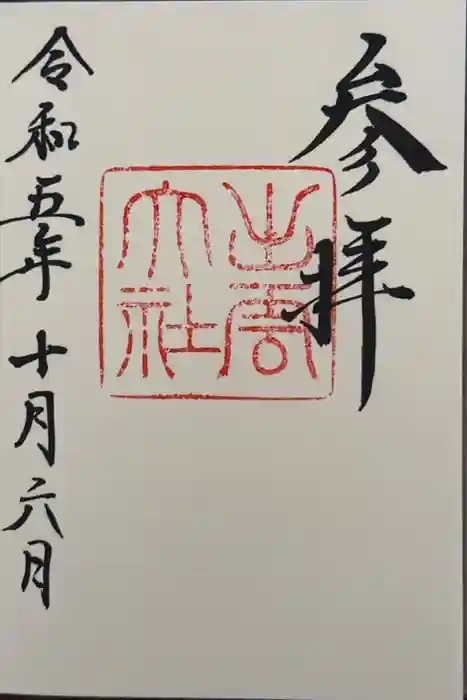 参拝
出雲
大社
令和五年十月六月